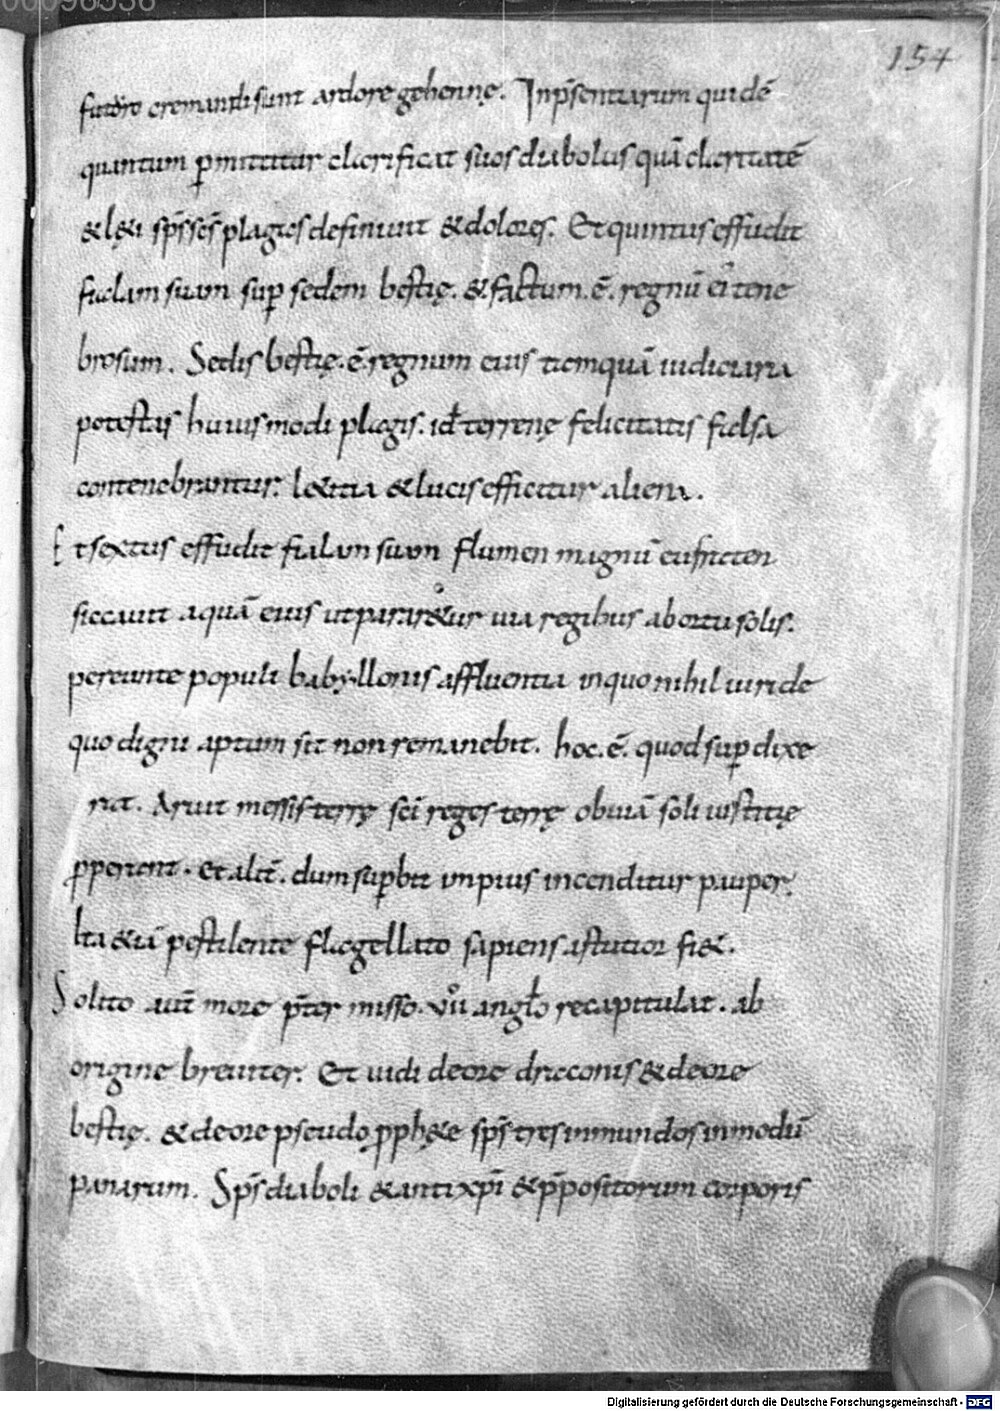 00096538
154
futuro cremandi sunt ardore gehennę. Inp̄sentiarum quidē
quantum ꝑmittitur clarificat suos diabolus quā claritatē
&l&i sp̄s sc̄s plagas definiuit &dolores. Et quintus effudit
fialam suam suꝑ sedem bestię. &factum.ē. regnū ei' tene
brosum. Sedis bestię.ē. regnum eius tamquā iudiciaria
potestas huius modi plagis. id terrenę felicitatis falsa
contenebrantur. l&itia &lucis efficitur aliena.
Et sextus effudit fialam suam flumen magnū eufraten
siccauit aquā eius ut parar&ur uia regibus abortu solis.
pereunte populi babyllonis affluentia inquo nihil uiride
quo digni aptum sit non remanebit. hoc.ē. quod suꝑ dixe
rat. Aruit messis terrę sc̄i reges terrę obuiā soli iustitię
ꝓperent. et alit̄. dum suꝑbit impius incenditur pauper.
Ita &iā pestilente flagellato sapiens astutior fi&.
Solito aut̄ more p̄ter misso. vͦū anglo recapitulat. ab
origine breuiter. Et uidi deore draconis &deore
bestię. &deore pseudo ꝓph&ę sp̄s tres inmundos inmodū
ranarum. Sp̄s diaboli &antixp̄i &p̄positorum corporis
Digitalisierung gefördert durch die Deutsche Forschungsgemeinschaft - DFG